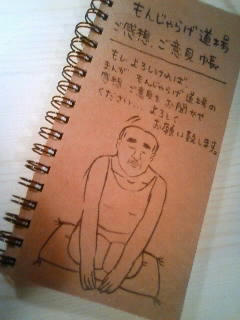 もんじゃらげ道場
ご感想、ご意見帳
もしよろしければ
まんが もんじゃらげ道場の
感想 ご意見をお聞かせ
ください… よろしく
お願い致します。